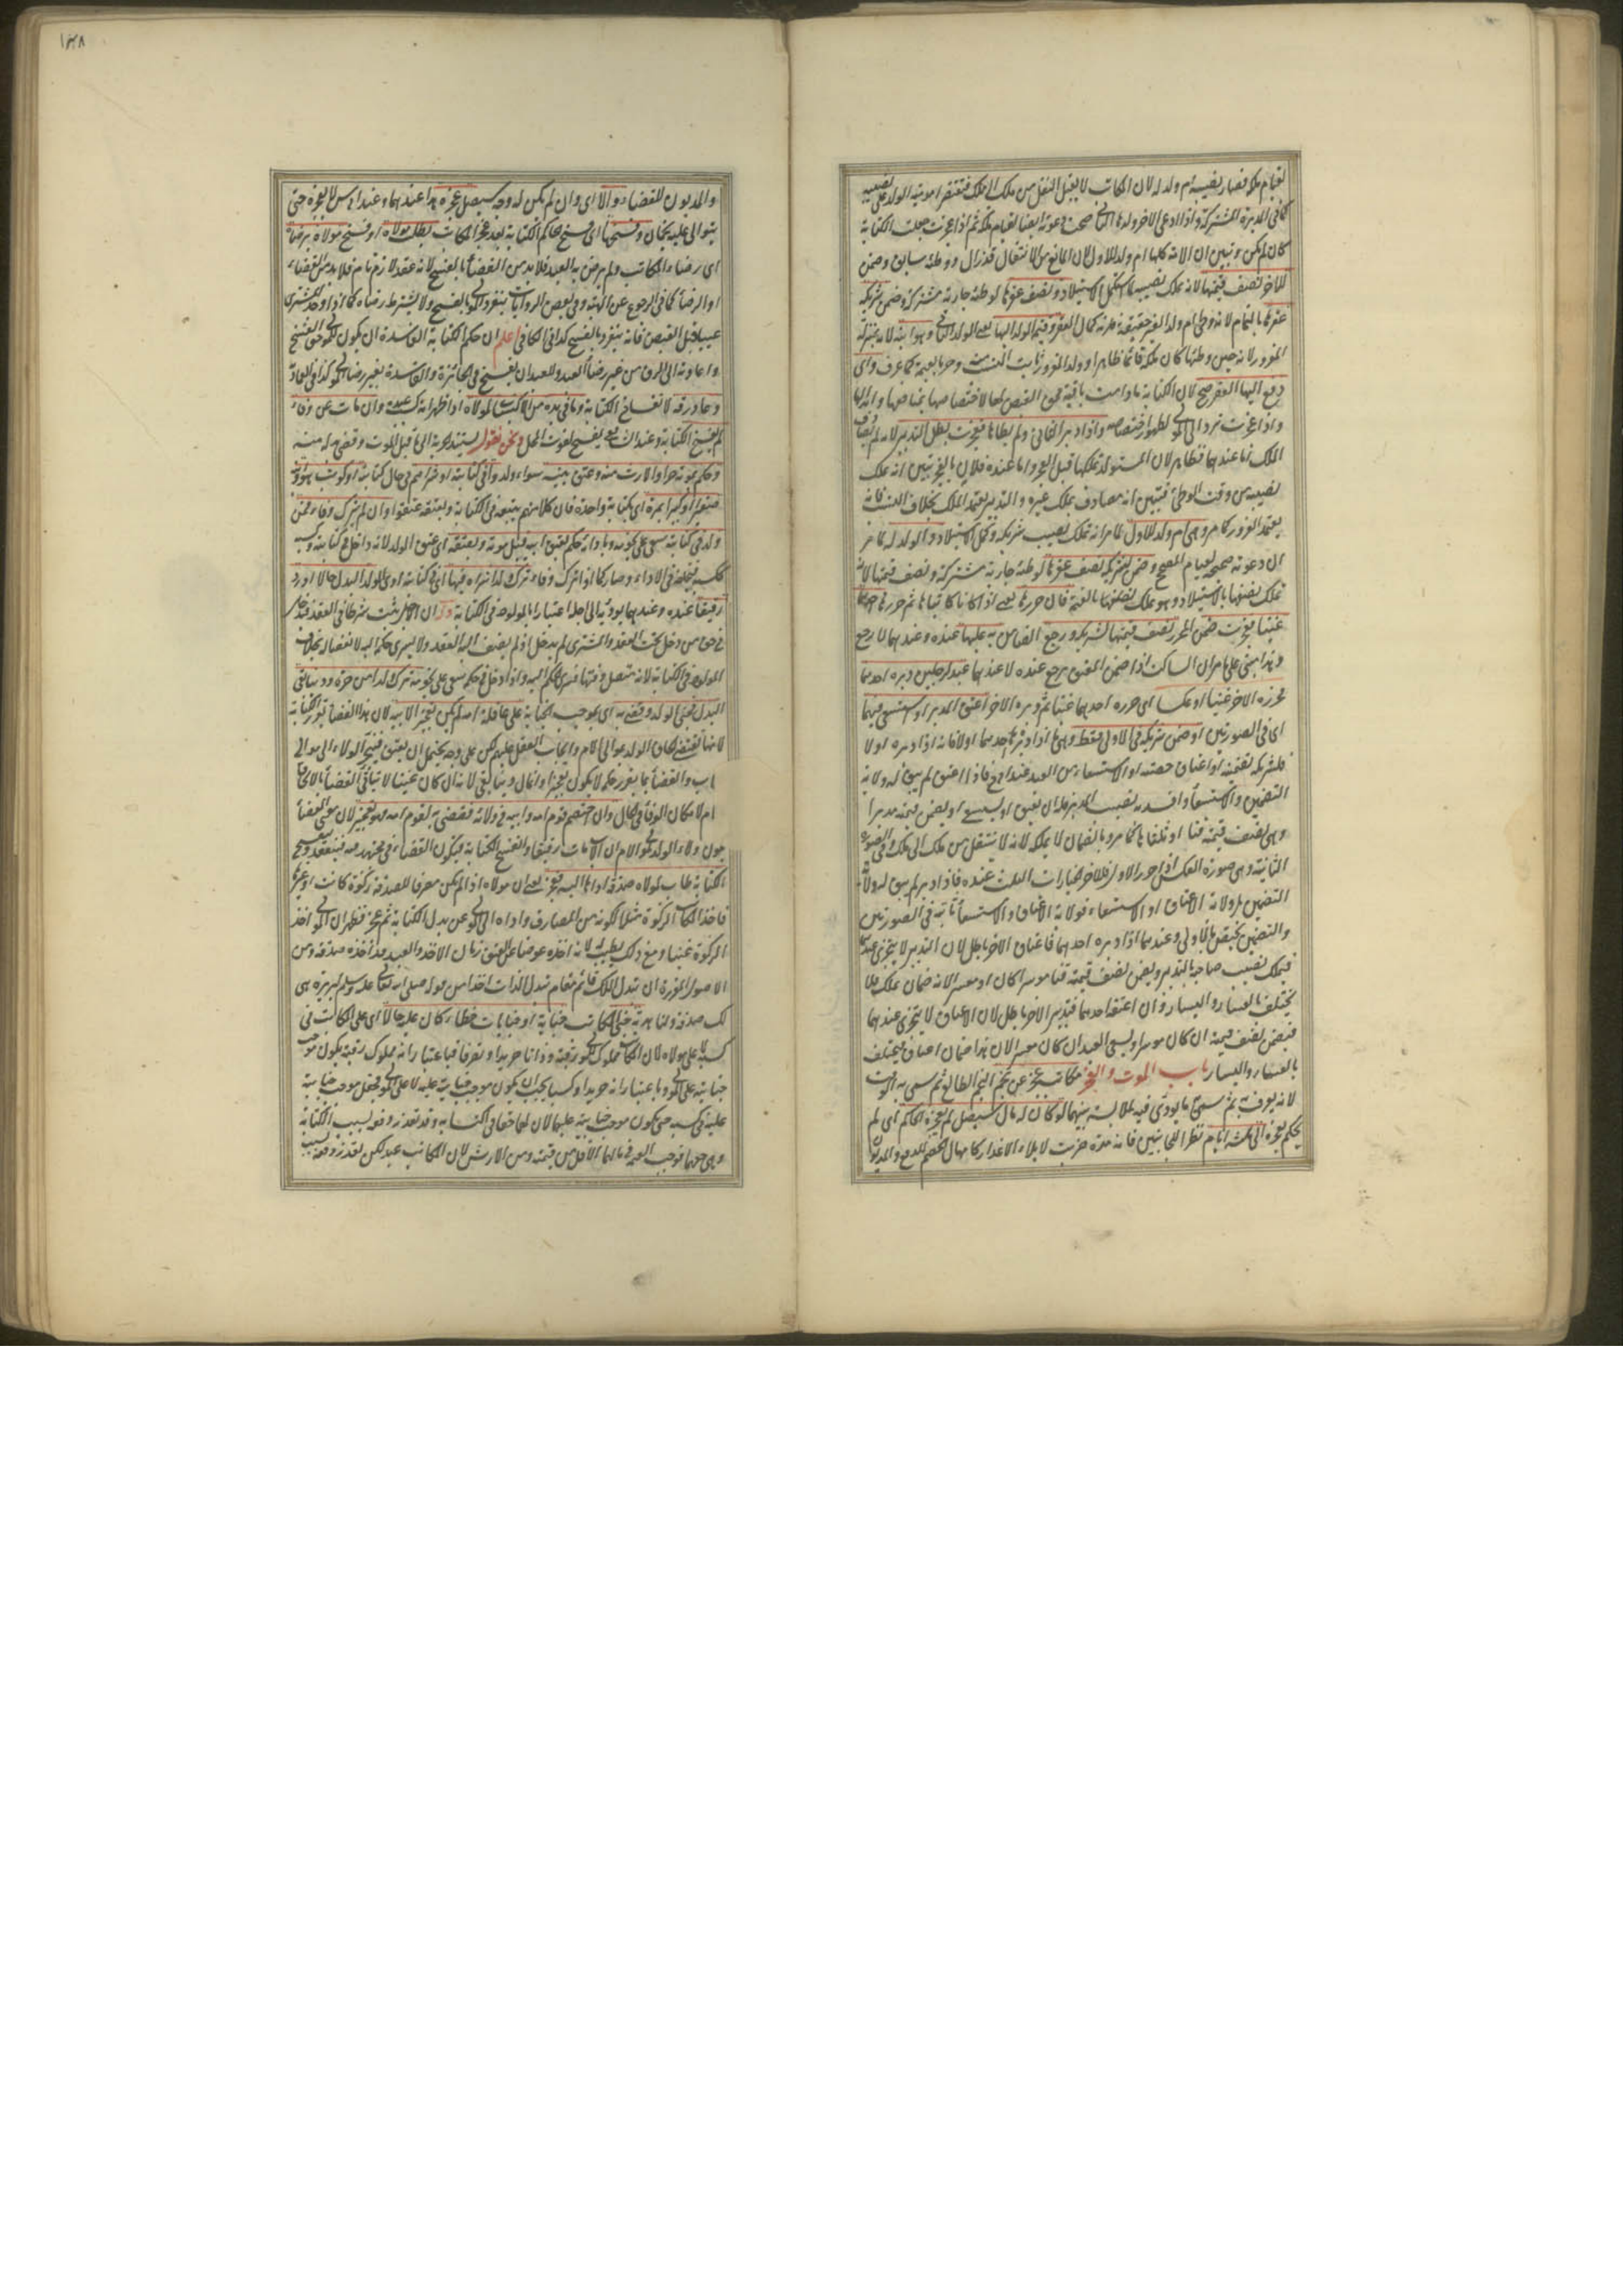 لقيام ملكه فصار نصيبه ام ولد له لان المكاتب لا يقبل النقل من ملك الى ملك فتقتصر امومية الولد على نصيبه
كما في المدبرة المشتركة واذا ادعى الآخر ولدها الثاني صحت دعوته ايضا لقيام ملكه ثم اذا عجزت جعلت الكتابة
كان لم يكن وتبين ان الامة كلها ام ولد للاول لان المانع من الانتقال قد زال ووطئه سابق وضمن
للآخر نصف قيمتها لانه تملك نصيبه لما استكمل الاستيلاد ونصف عقرها لوطئه جارية مشتركة وضمن شريكه
عقرها بالتمام لانه وطئ ام ولد الغير حقيقة فلزمه كمال العقر وقيمة الولد ايها يعني الولد الثاني وهو ابنه لانه بمنزلة
المغرور لانه حين وطئها كان ملكه قائما ظاهرا وولد المغرور ثابت النسب وحر بالقيمة كما عرف واى
دفع اليها العقر صح لان الكتابة ما دامت باقية فحق القبض لها لاختصاصها بمنافعها وابدالها
واذا عجزت ترد الى المولى لظهور اختصاصه واذا دبر الثاني ولم يطأها فعجزت بطل التدبير لانه لم يصادف
الملك اما عندهما فظاهر لان المستولد تملكها قبل العجز واما عنده فلان بالعجز تبين انه تملك
نصيبه من وقت الوطئ فتبين انه مصادف ملك غيره والتدبير يعتمد الملك بخلاف النسب فانه
يعتمد الغرور كما مر وهى ام ولد للاول لما مر انه تملك نصيب شريكه وكمل الاستيلاد والولد له لما مر
ان دعوته صحيحة لقيام المصحح وضمن لشريكه نصف عقرها لوطئه جارية مشتركة ونصف قيمتها لانه
تملك نصفها بالاستيلاد وهو تملك لنصفها بالقيمة فان حررها يعني اذا كانا كاتباها ثم حررها احدهما
غنيا فعجزت ضمن المحرر نصف قيمتها لشريكه ورجع الضامن به عليها عنده وعندهما لا يرجع
وهذا مبنى على ما مر ان الساكت اذا ضمن المعتق يرجع عنده لا عندهما عبد لرجلين دبره احدهما
ثم حرره الآخر غنيا او عكسا اى حرره احدهما غنيا ثم دبره الآخر اعتق المدبر او استسعى فيهما
اى في الصورتين او ضمن شريكه في الاولى فقط وهى ما اذا دبره احدهما اولا فانه اذا دبره اولا
فلشريكه تضمينه او اعتاق حصته او الاستسعاء من العبد عند ابى ح فاذا اعتق لم يبق له ولاية
التضمين والاستسعاء وافسد نصيب المدبر فله ان يعتق او يستسعى او يضمن قيمته مدبرا
وهى نصف قيمته قنا او ثلثاها كما مر وبالضمان لا يملكه لانه لا ينتقل من ملك الى ملك وفي الصورة
الثانية وهى صورة العكس اذا حرر الاول فللآخر الخيارات الثلث عنده فاذا دبر لم يبق له ولاية
التضمين بل ولاية الاعتاق او الاستسعاء فولاية الاعتاق والاستسعاء ثابتة في الصورتين
والتضمين يختص بالاولى وعندهما اذا دبره احدهما فاعتاق الآخر باطل لان التدبير لا يتجزى عندهما
فيملك نصيب صاحبه بالتدبير ويضمن نصف قيمته قنا موسرا كان او معسرا لانه ضمان تملك فلا
يختلف بالعسار واليسار وان اعتقه احدهما فتدبير الآخر باطل لان الاعتاق لا يتجزى عندهما
فيضمن نصف قيمته ان كان موسرا ويسعى العبد ان كان معسرا لان هذا ضمان اعتاق فيختلف
بالعسار واليسار باب الموت والعجز مكاتب عجز عن نجم النجم الطالع ثم سمى به الوقت
لانه يعرف به ثم سمى ما يودى فيه لملابسة بينهما لو كان له مال سيصل لم يعجزه الحاكم اى لم
يحكم بعجزه الى ثلثة ايام نظرا للجانبين فانه مدة ضربت لابلاء الاعذار كامهال الخصم للدفع والمديون
١٣٨
والمديون للقضاء والا اى وان لم يكن له وجه سيصل عجزه هذا عندهما وعند ابى س لا يعجزه حتى
يتوالى عليه نجمان وفسخها اى فسخ حاكم الكتابة بعد عجز المكاتب بطلب مولاه او فسخ مولاه برضاه
اى رضاء المكاتب ولم يرض به العبد فلا بد من القضاء بالفسخ لانه عقد لازم تام فلا بد من القضاء
او الرضا كما في الرجوع عن الهبة وفي بعض الروايات ينفرد المولى بالفسخ ولا يشترط رضاه كما اذا وجد المشترى
عيبا قبل القبض فانه ينفرد بالفسخ كذا في الكافي اعلم ان حكم الكتابة الفاسدة ان يكون للمولى حق الفسخ
واعادته الى الرق من غير رضا العبد وللعبد ان يفسخ في الجائزة والفاسدة بغير رضا المولى كذا في العمادية
وعاد رقه لانفساخ الكتابة وما في يده من الاكساب لمولاه اذا ظهر انه كسب عبده وان مات عن وفاء
لم يفسخ الكتابة وعند الشافعي يفسخ لفوت المحل ونحن نقول يستند حريته الى ما قبل الموت وقضى بدله منه
وحكم بموته حرا والارث منه وعتق بنيه سواء ولدوا في كتابته او شراهم في حال كتابته او كوتب هو وابنه
صغيرا او كبيرا بمرة اى بكتابة واحدة فان كلا منهم يتبعه في الكتابة وبعتقه عتقوا وان لم يترك وفاء فمن
ولد في كتابته سعى على نجومه وبادائه حكم بعتق ابيه قبل موته وبعتقه اى عتق الولد لانه داخل في كتابته وكسبه
ككسبه فيخلفه في الاداء وصار كما اذا ترك وفاء ترك ولدا شراه فيها اى في كتابته ادى الولد البدل حالا او رد
رقيقا عنده وعندهما يوديه الى اجله اعتبارا بالمولود في الكتابة وله ان الاجل يثبت شرطا في العقد فيثبت
في حق من دخل تحت العقد والمشترى لم يدخل اذ لم يضف اليه العقد ولا يسرى حكمه اليه لانفصاله بخلاف
المولود في الكتابة لانه متصل وقتها فيسرى الحكم اليه واذا دخل في حكمه سعى على نجومه ترك ولدا من حرة ودينا يفى
البدل فجنى الولد وقضى به اى بموجب الجناية على عاقلة امه لم يكن تعجيزا لابيه لان هذا القضاء يقرر الكتابة
لانها تقتضى الحاق الولد بموالى الام وايجاب العقل عليهم لكن على وجه يحتمل ان يعتق فينجر الولاء الى موالى
اب والقضاء بما يقرر حكمه لا يكون تعجيزا وانما قال دينا يفى لانه ان كان عينا لا يتأتى القضاء بالالحاق
ام لامكان الوفاء في الحال وان اختصم قوم امه وابيه في ولائه فقضى به لقوم امه فهو تعجيز لان معنى القضاء
بكون ولاء الولد لموالى الام ان الاب مات رقيقا وانفسخ الكتابة فيكون القضاء في مجتهد فيه فينفذ ويفسخ
الكتابة طاب لمولاه صدقة اداها اليه فعجز يعني ان مولاه اذا لم يكن مصرفا للصدقة زكوة كانت او غيرها
فاخذ المكاتب الزكوة مثلا لكونه من المصارف واداه الى المولى عن بدل الكتابة ثم عجز فظهر ان المولى اخذ
الزكوة غنيا ومع ذلك يطيب له لانه اخذه عوضا عن العتق زمان الاخذ والعبد قد اخذه صدقة ومن
الاصول المقررة ان تبدل الملك قائم مقام تبدل الذات اخذا من قوله صلى الله تعالى عليه وسلم لبريرة هى
لك صدقة ولنا هدية جنى المكاتب جناية او جنايات خطاء كان عليه حالا اى على المكاتب في
كسبه لا على مولاه لان المكاتب مملوك للمولى رقبة وذاتا حر يدا وتصرفا فباعتبار انه مملوك رقبة يكون موجب
جنايته على المولى وباعتبار انه حر يدا وكسبا يجب ان يكون موجب جنايته عليه لا على المولى فجعل موجب جناية
عليه في كسبه حتى يكون موجب جنايته عليهما لان لهما حقا في اكتسابه وقد تعذر دفعه لسبب الكتابة
وهى حقهما فوجب العبد في مالهما الاقل من قيمته ومن الارش لان المكاتب عبد لكن تعذر دفعه بسبب